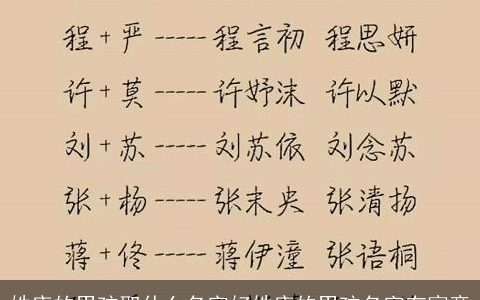 程+严-----程言初 程思妍
许+莫-----许妤沫 许以默
刘+苏-----刘苏依 刘念苏
张+杨-----张末央 张清扬
蒋+佟-----蒋伊潼 张语桐